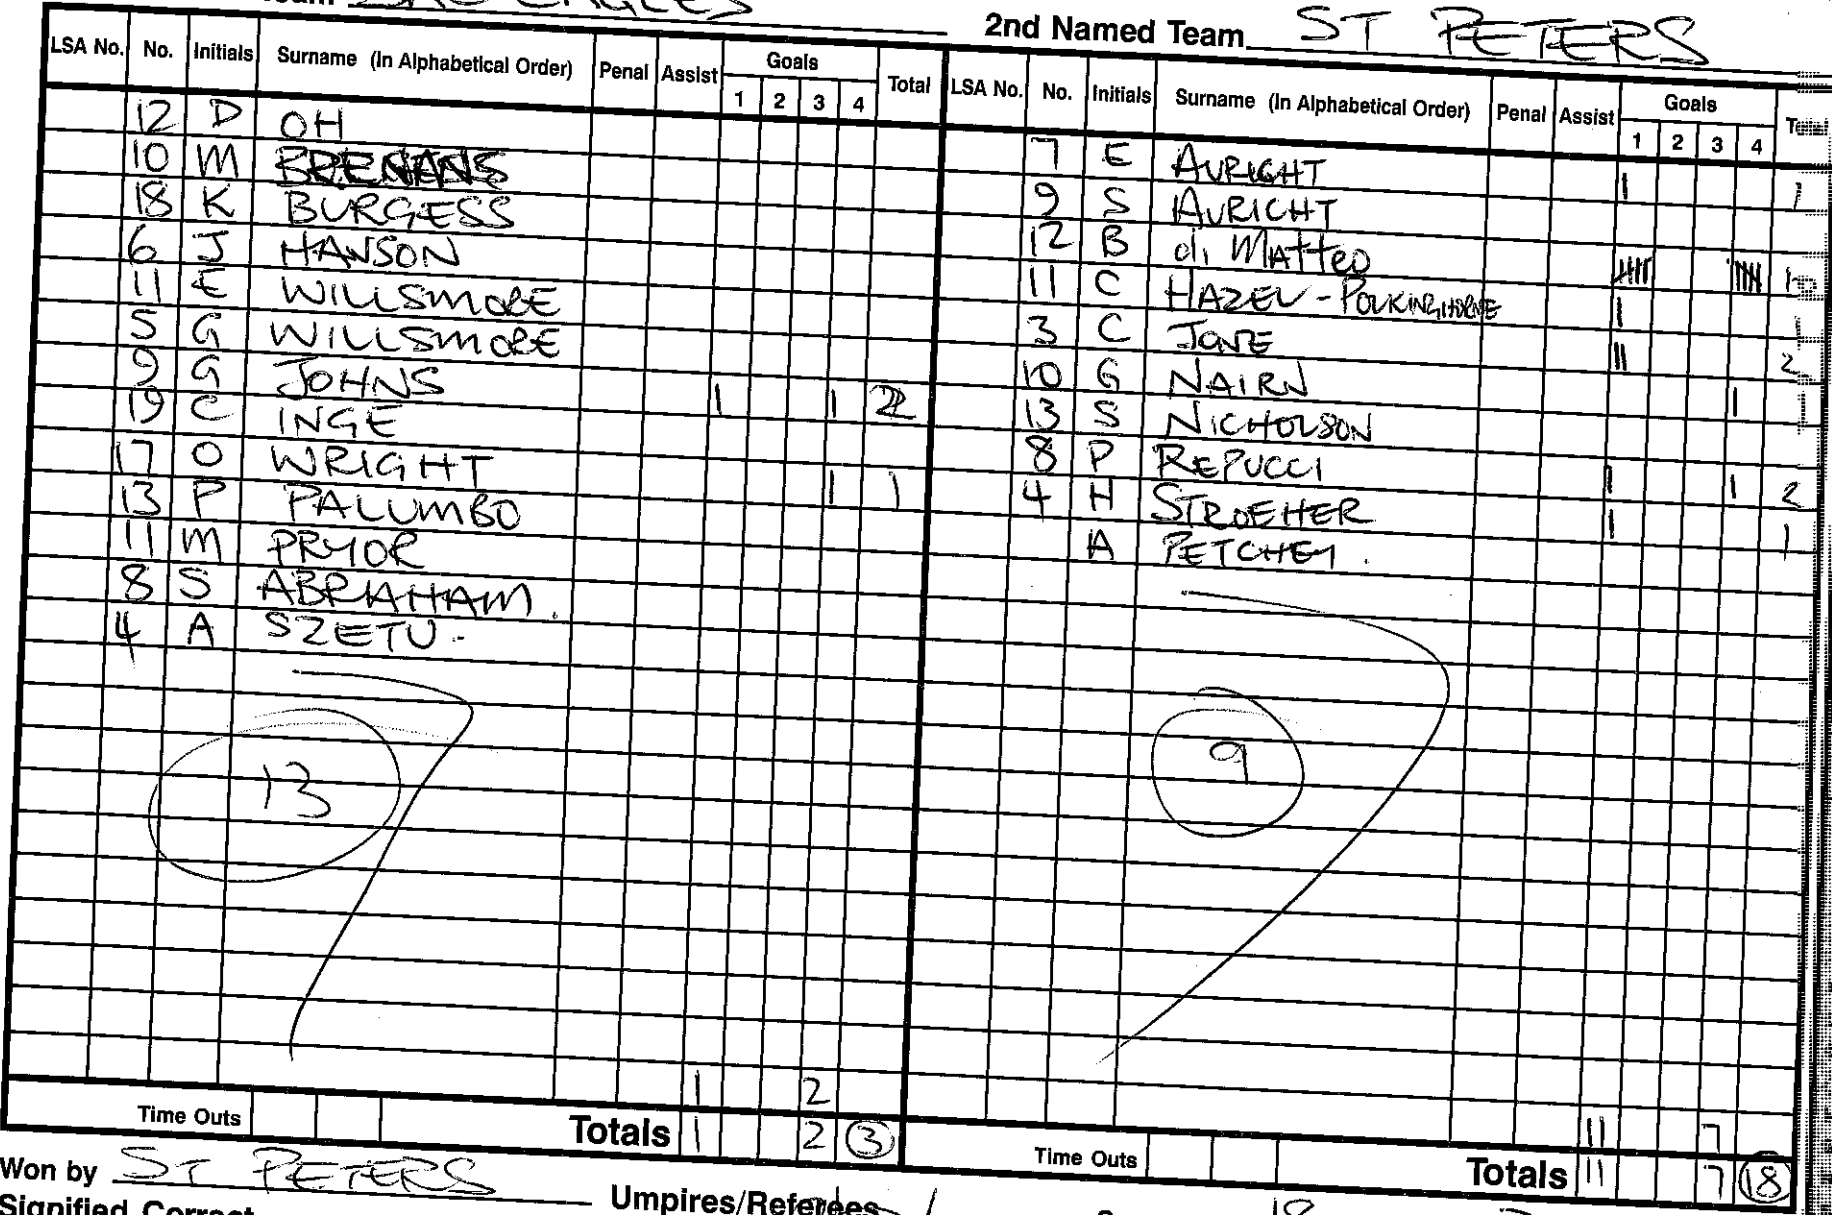 Team EAGLES
2nd Named Team ST PETERS
LSA No. No. Initials Surname (In Alphabetical Order) Penal Assist Goals 1 2 3 4 Total
12 D OH
10 M
18 K BURGESS
6 J HANSON
11 E WILLSMORE
5 G WILLSMORE
9 G JOHNS
19 C INGE 1 1 2
17 O WRIGHT
13 P PALUMBO 1 1
11 M PRYOR
8 S ABRAHAM.
4 A SZETU.
13
1 2
Time Outs Totals 1 2 3
LSA No. No. Initials Surname (In Alphabetical Order) Penal Assist Goals 1 2 3 4 Total
7 E AURIGHT 1 1
9 S AURICHT
12 B di Matteo
11 C HAZEL-POLKINGHORNE 10
3 C JONE 1 1
10 G NAIRN 11 2
13 S NICHOLSON 1 1
8 P REPUCCI
4 H STROEHER 1 1 2
A PETCHEY. 1 1
9
11 7
Time Outs Totals 11 7 18
Won by ST PETERS
Signified Correct Umpires/Referees